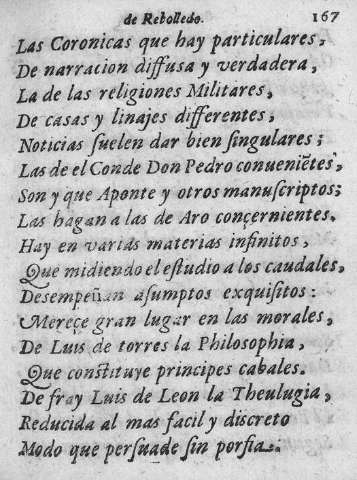 de Rebolledo. 167
Las Coronicas que hay particulares,
De narracion diffusa y verdadera,
La de las religiones Militares,
De casas y linajes differentes,
Noticias ſuelen dar bien ſingulares;
Las de el Conde Don Pedro conueniētes,
Son y que Aponte y otros manuſcriptos;
Las hagan a las de Aro conçernientes.
Hay en varias materias infinitos,
Que midiendo el eſtudio a los caudales,
Deſempeñan aſumptos exquiſitos:
Mereçe gran lugar en las morales,
De Luis de torres la Philoſophia,
Que conſtituye principes cabales.
De fray Luis de Leon la Theulugia,
Reducida al mas facil y diſcreto
Modo que perſuade ſin porfia.